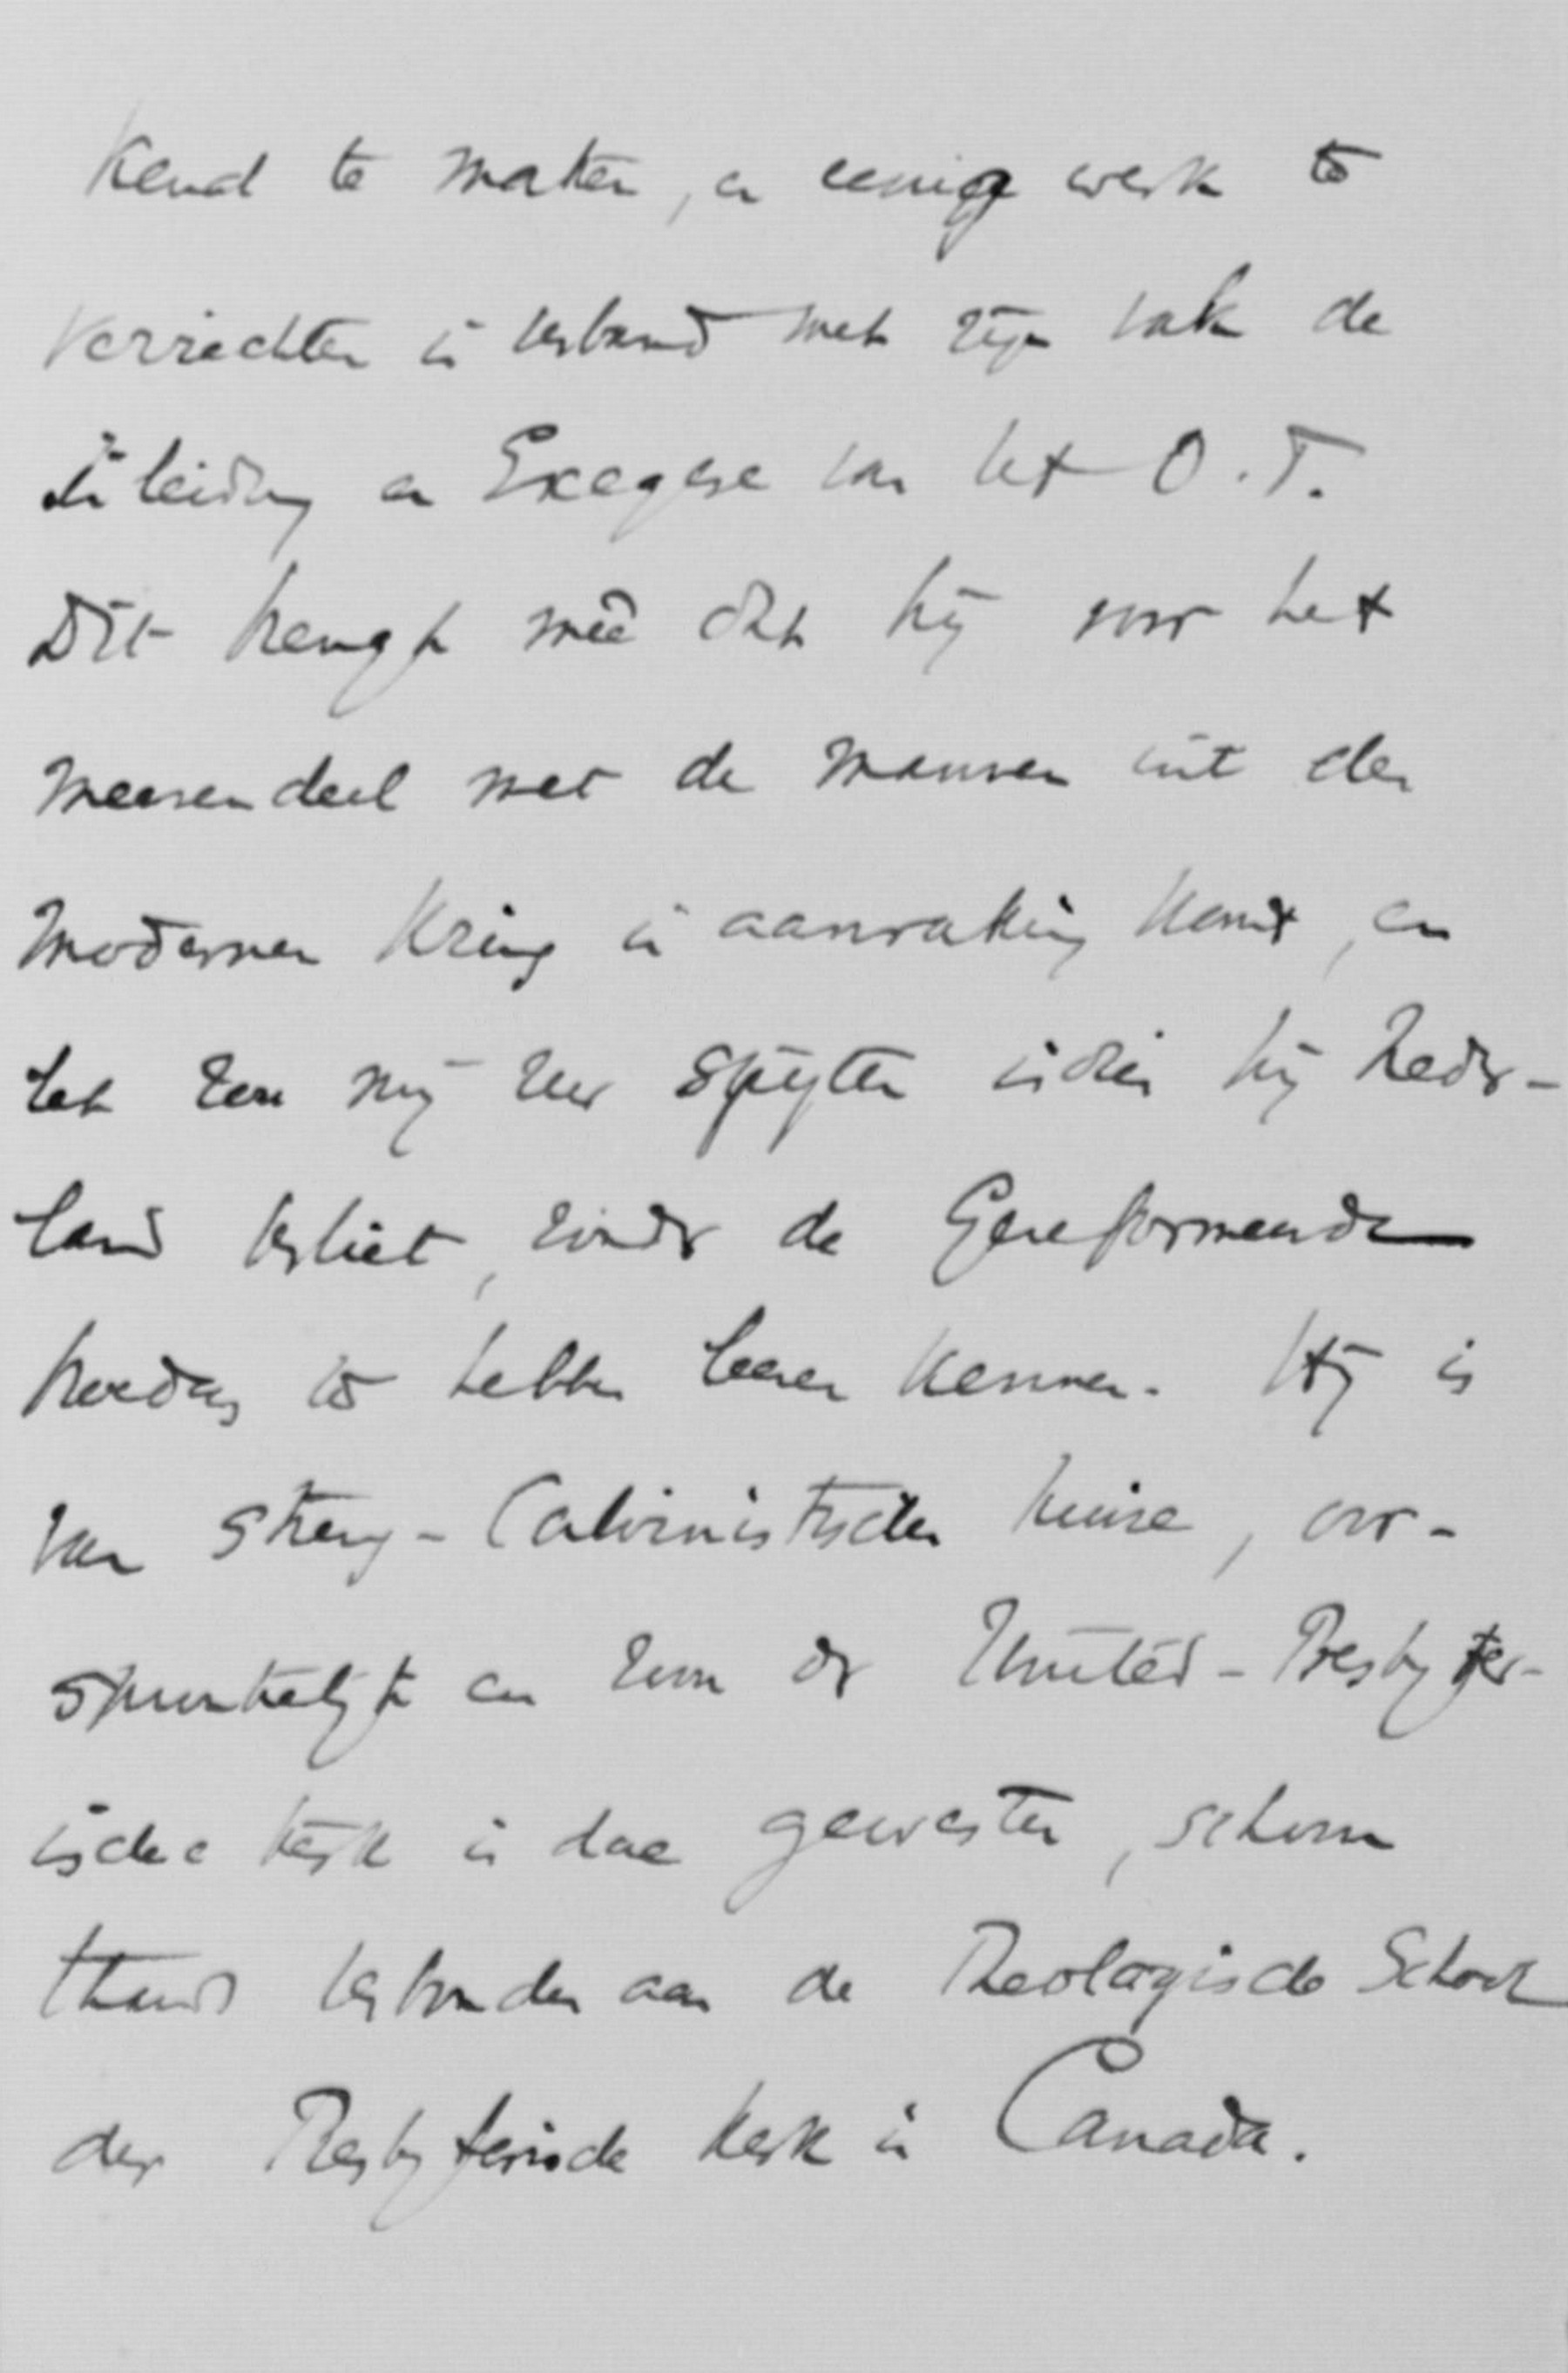 kend te maken, en eenige werk te
verrichten in verband met zijn vak de
Inleiding en Exegese van het O.T.
Dit brengt meê dat hij voor het
meerendeel met de mannen uit den
modernen kring in aanraking komt, en
het zou mij zeer spijten indien hij Neder-
land verliet, zonder de Gereformeerde
broeders te hebben leeren kennen. Hij is
van streng-Calvinistischen huize, oor-
spronkelijk een zoon der United-Presbyter-
ische kerk in deze gewesten, schoon
thans verbonden aan de Theologische School
der Presbyterische kerk in Canada.